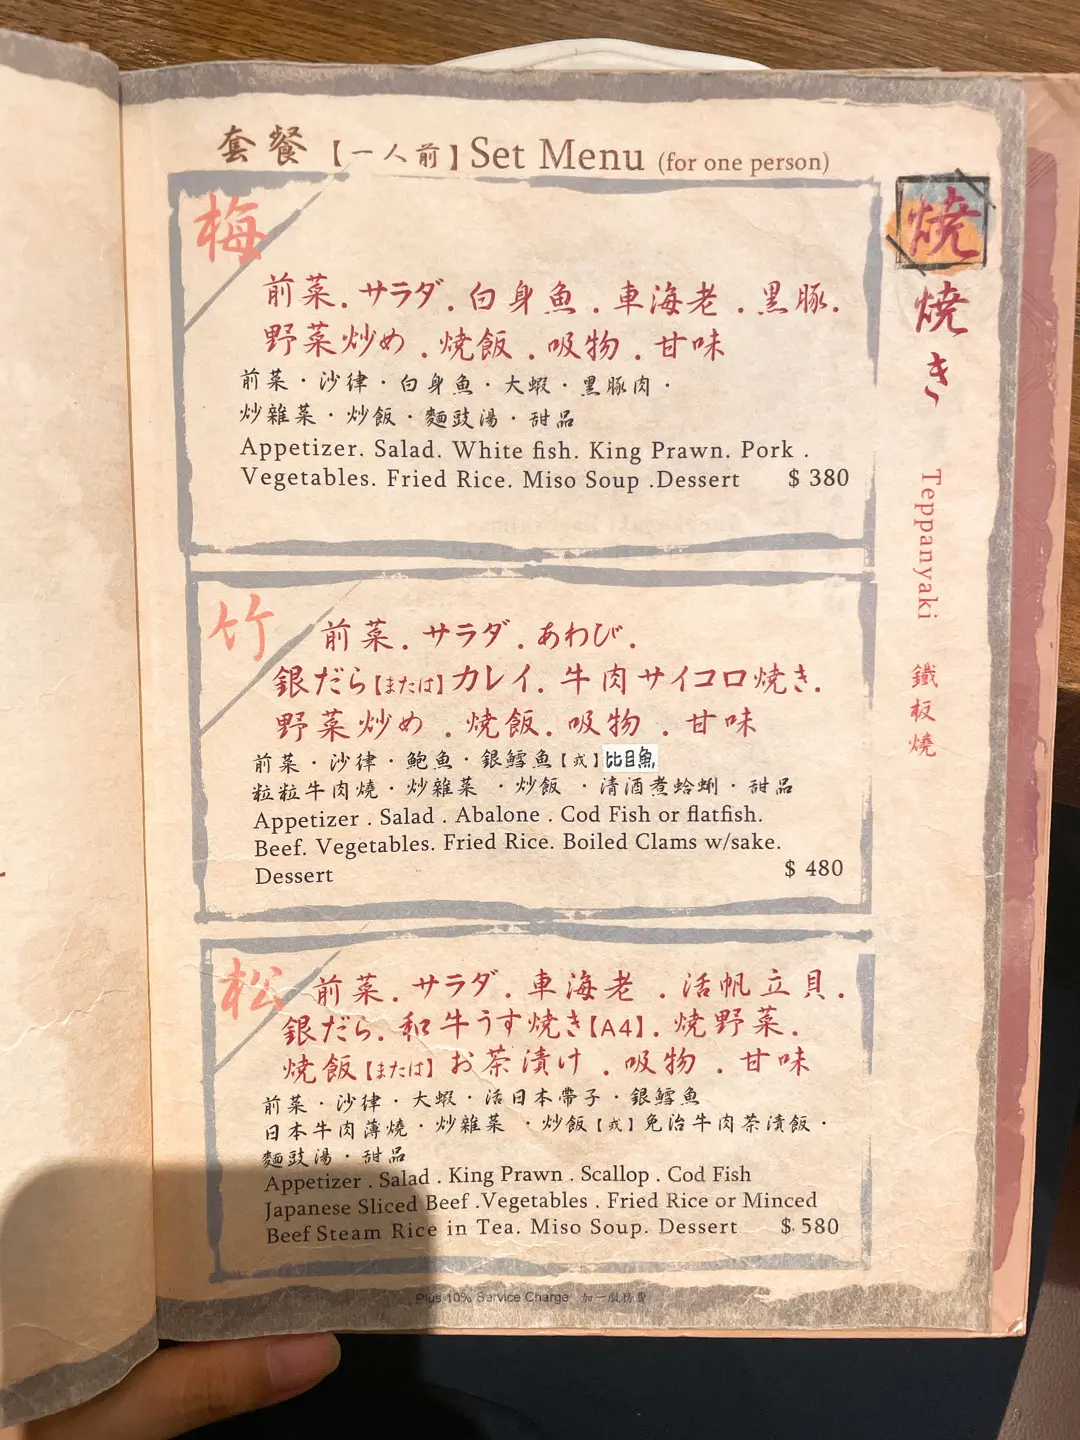 套餐【一人前】Set Menu (for one person)
梅
前菜.サラダ.白身魚.車海老.黒豚.
野菜炒め.焼飯.吸物.甘味
前菜·沙律·白身魚·大蝦·黑豚肉·
炒雜菜·炒飯·麵豉湯·甜品
Appetizer. Salad. White fish. King Prawn. Pork .
Vegetables. Fried Rice. Miso Soup .Dessert $ 380
竹
前菜.サラダ.あわび.
銀だら【または】カレイ.牛肉サイコロ焼き.
野菜炒め.焼飯.吸物.甘味
前菜·沙律·鮑魚·銀鱈魚【或】比目魚,
粒粒牛肉燒·炒雜菜·炒飯·清酒煮蛤蜊·甜品
Appetizer . Salad . Abalone . Cod Fish or flatfish.
Beef. Vegetables. Fried Rice. Boiled Clams w/sake.
Dessert $ 480
松
前菜.サラダ.車海老.活帆立貝.
銀だら.和牛うす焼き【A4】.焼野菜.
焼飯【または】お茶漬け.吸物.甘味
前菜·沙律·大蝦·活日本帶子·銀鱈魚
日本牛肉薄燒·炒雜菜·炒飯【或】免治牛肉茶漬飯·
麵豉湯·甜品
Appetizer . Salad . King Prawn . Scallop . Cod Fish
Japanese Sliced Beef .Vegetables . Fried Rice or Minced
Beef Steam Rice in Tea. Miso Soup. Dessert $ 580
Plus 10% Service Charge 加一服務費
焼
焼き
Teppanyaki
鐵板燒